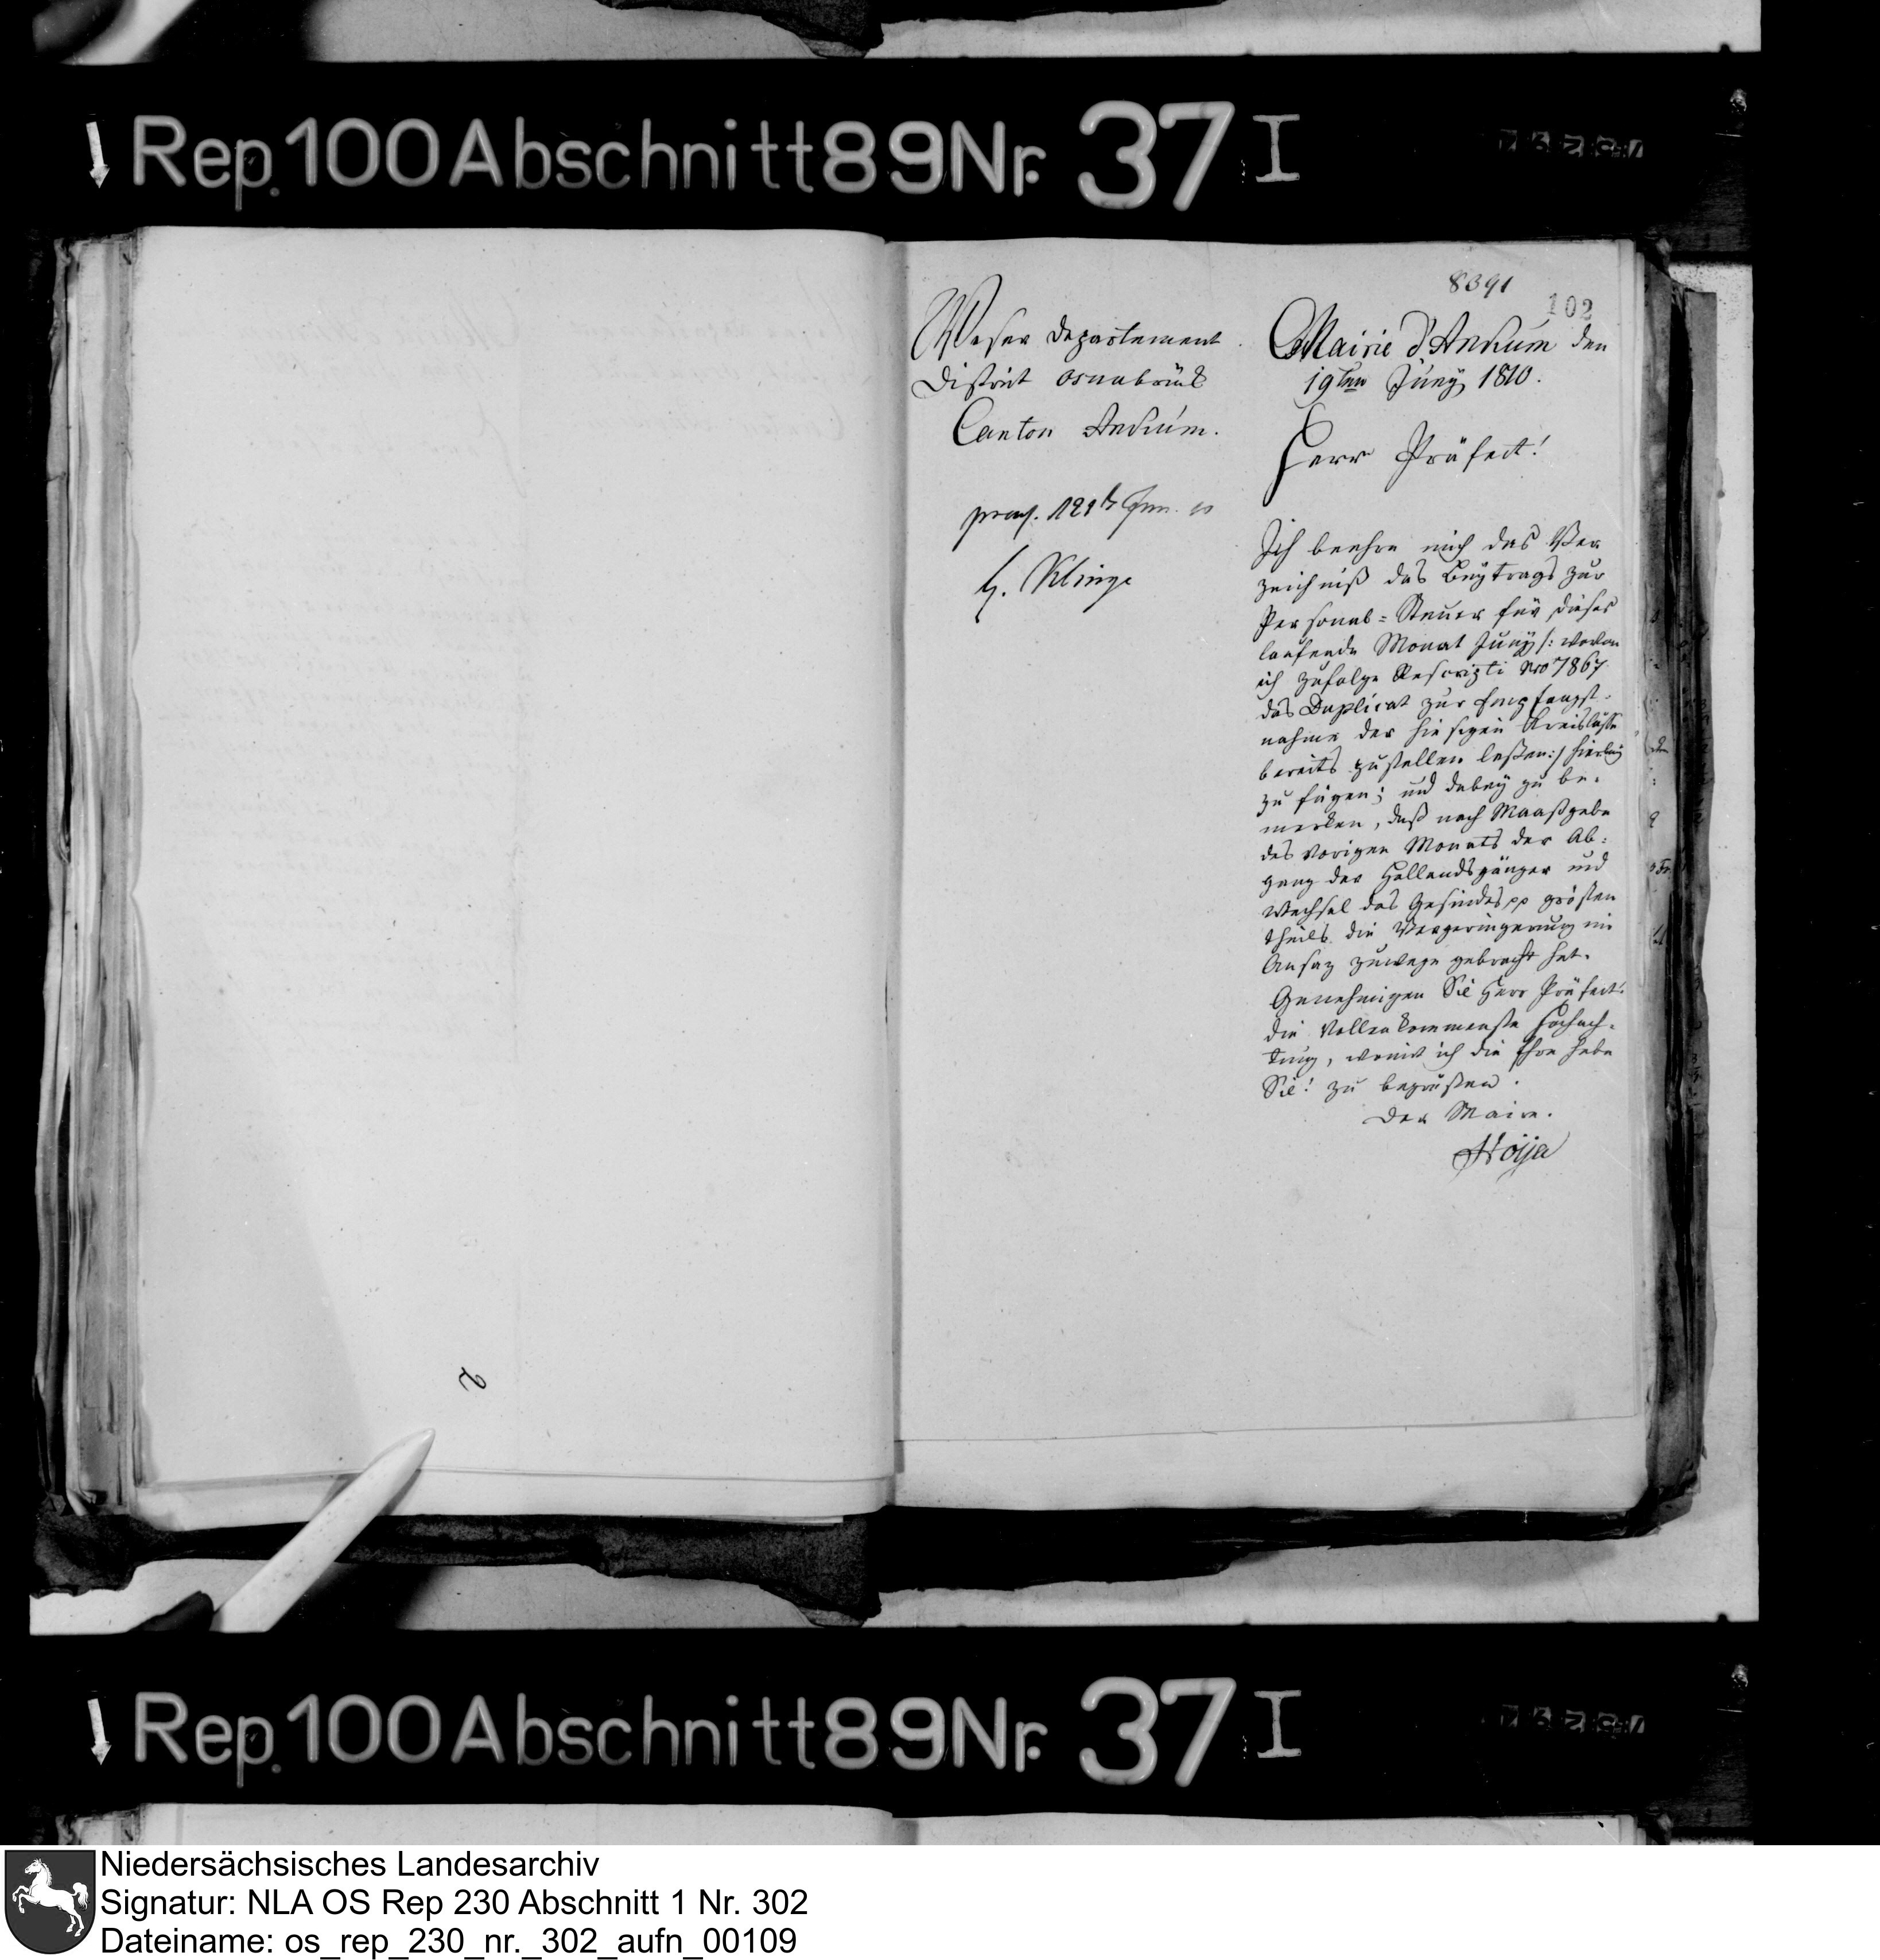 Rep. 100 Abschnitt 89 Nr. 37 I
8391
102
Weser Departement
District Osnabrück
Canton Ankum.
H. Klinge
Mairie d'Ankum den
19ten Juny 1810.
Herr Präfect!
Ich beehre mich das Ver
zeichniß des Beytrags zur
Personal=Steuer für dieses
laufende Monat Juny /: wovon
ich zufolge Rescripti No 7867
das Duplicat zur Empfangst-
nahme der hiesigen Kreiskasse
bereits zustellen laßen :/ hierbey
zu fügen; und dabey zu be-
merken, daß nach Maaßgabe
des vorigen Monats der Ab-
gang der Hollandsgänger und
Wechsel des Gesindes pp grösten
theils die Vergeringerung im
Ansaz zuwege gebracht hat.
Genehmigen Sie Herr Präfect!
die Vollenkommenste Hochach-
tung, womit ich die Ehre habe
Sie! zu begrüßen.
Der Maire.
Rep. 100 Abschnitt 89 Nr. 37 I
Niedersächsisches Landesarchiv
Signatur: NLA OS Rep 230 Abschnitt 1 Nr. 302
Dateiname: os_rep_230_nr._302_aufn_00109